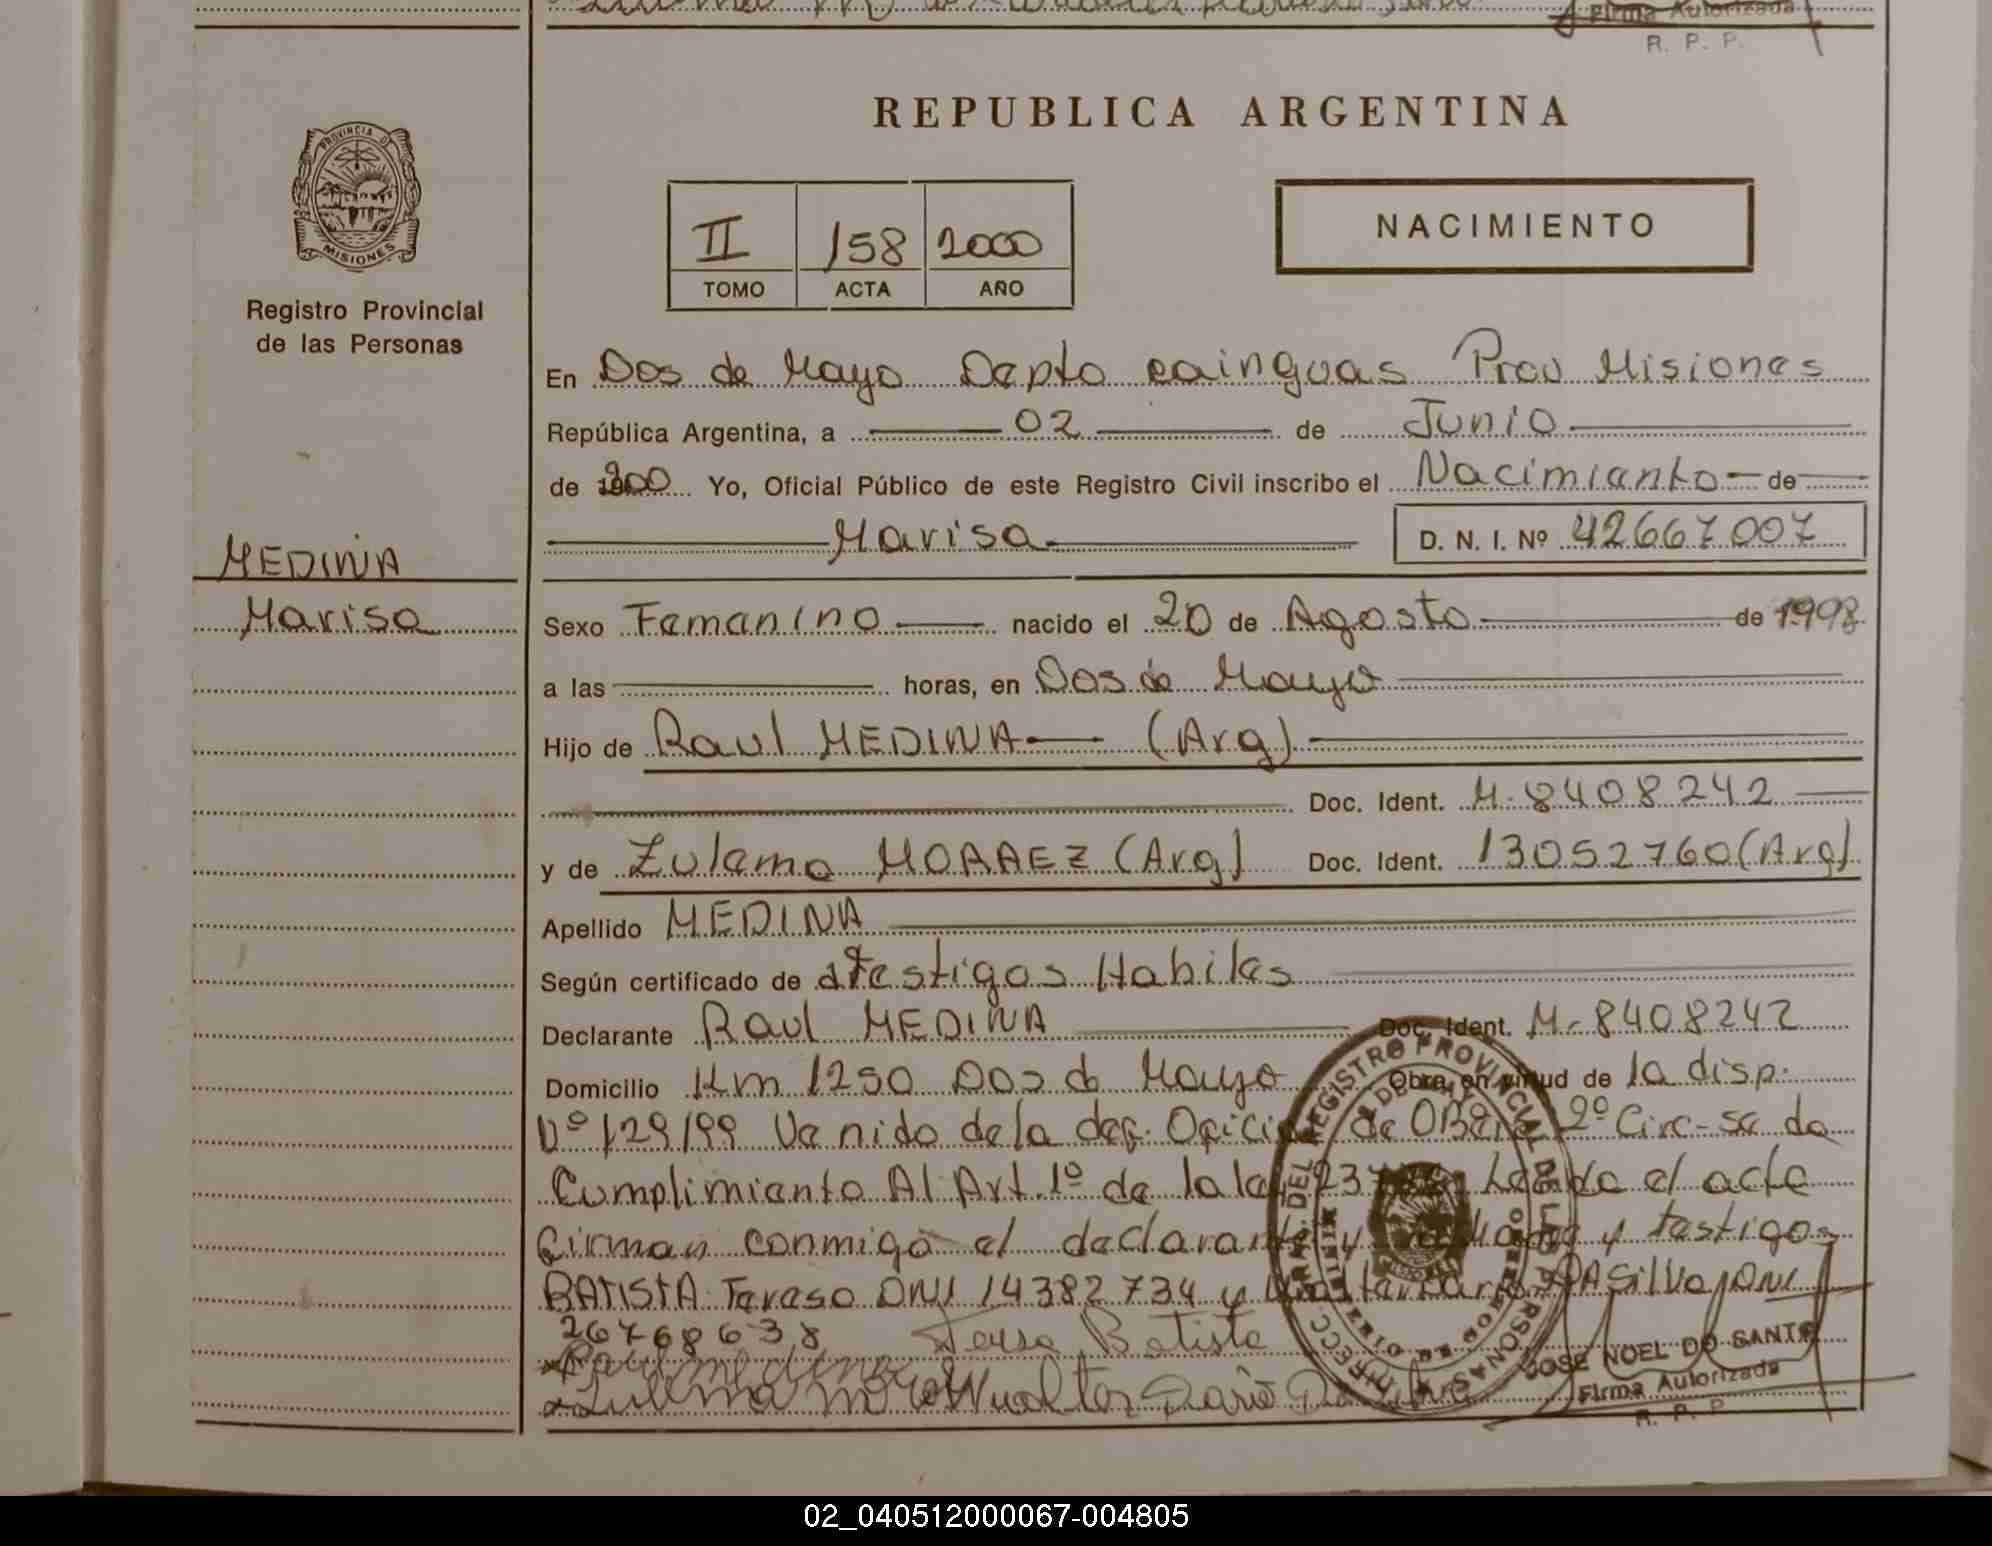 Firma Autorizada
R. P. P.
PROVINCIA DE
MISIONES
Registro Provincial
de las Personas
REPUBLICA ARGENTINA
II 158 2000
TOMO ACTA AÑO
NACIMIENTO
En Dos de Mayo Depto cainguas Prov Misiones
República Argentina, a 02 de Junio
de 2000 Yo, Oficial Público de este Registro Civil inscribo el Nacimiento de
Marisa D. N. I. Nº 42667007
MEDINA
Marisa
Sexo Femenino nacido el 20 de Agosto de 1998
a las horas, en Dos de Mayo
Hijo de Raul MEDINA (Arg)
Doc. Ident. M-8408242
y de Zulema MORAEZ (Arg) Doc. Ident. 13052760 (Arg)
Apellido MEDINA
Según certificado de testigos Habiles
Declarante Raul MEDINA Doc. Ident. M-8408242
Domicilio Km 1250 Dos de Mayo Obra en virtud de la disp.
Nº 129/99 Venido de la def. Oficial de OBera 2º Circ-se da
Cumplimiento Al Art. 1º de la ley Leida el acta
firman conmigo el declarante y testigos
BATISTA Teresa DNI 14382734 y DASilva DNI
26768638 Teresa Batista
Raul medina
Zulema Dario
JOSE NOEL DO SANTO
Firma Autorizada
R. P. P.
DIRECC. GRAL. DEL REGISTRO PROVINCIAL DE LAS PERSONAS
02_040512000067-004805